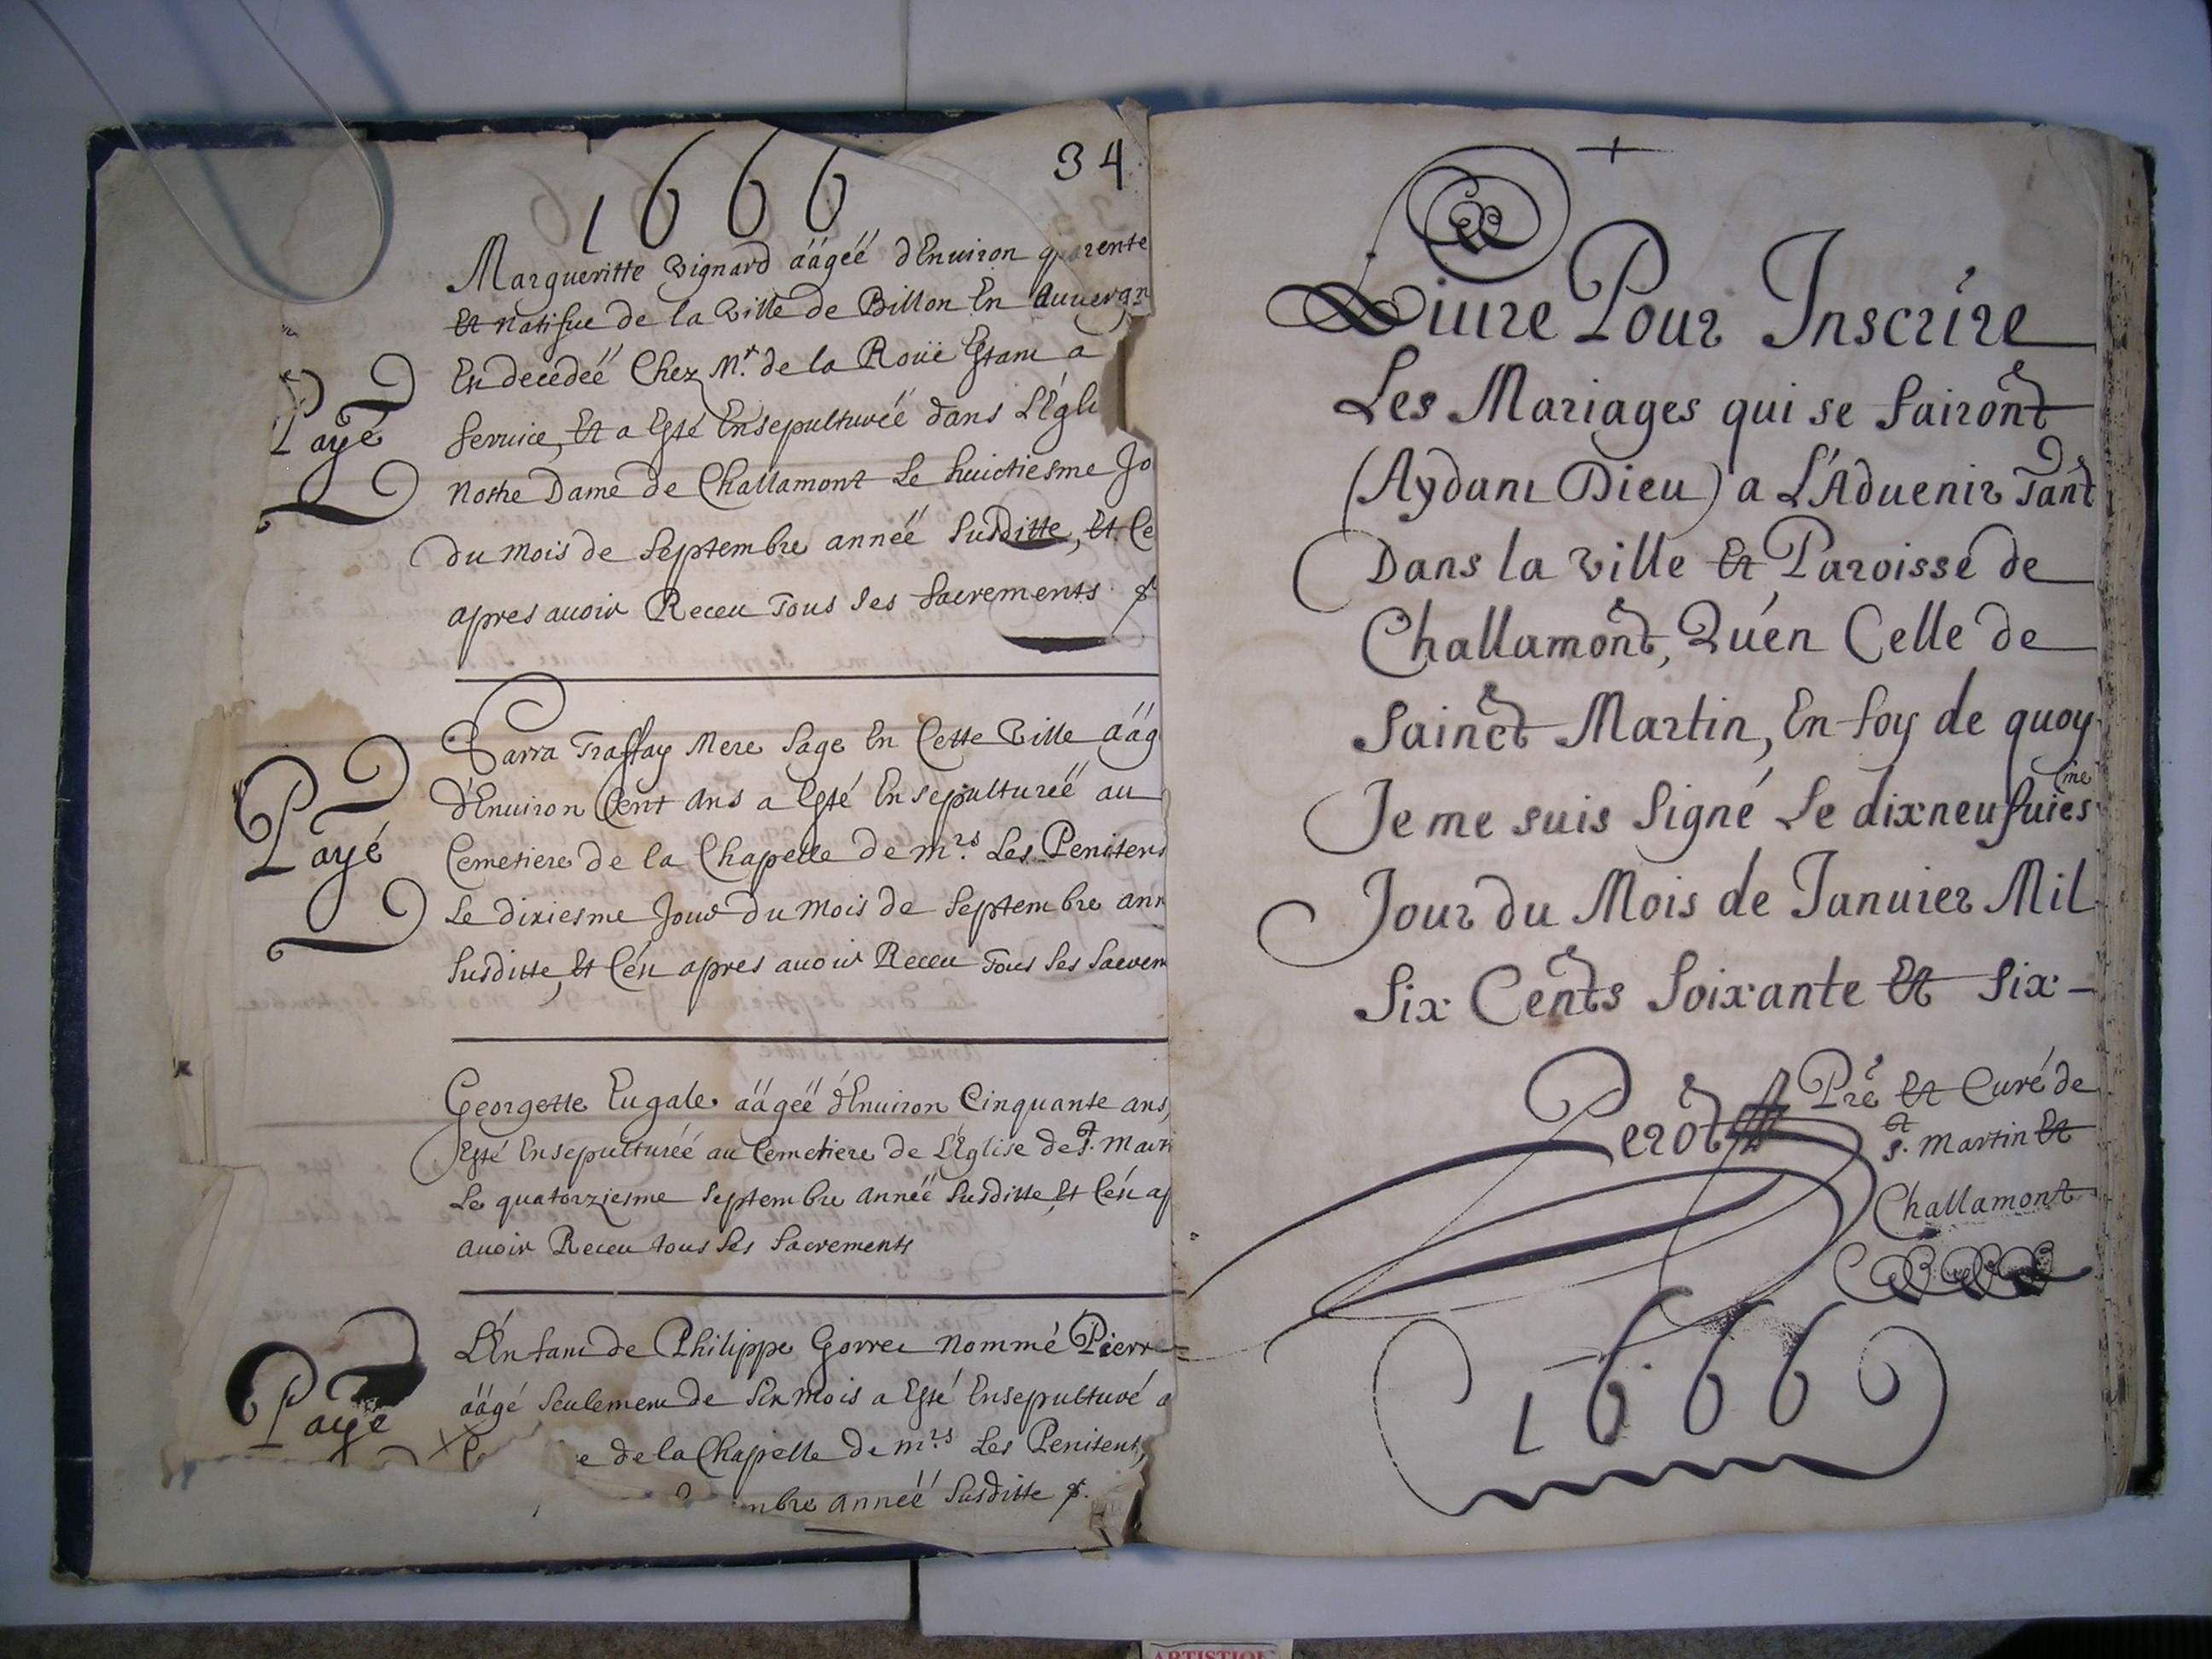 1666
34
Margueritte Vignard ääгéé d'Enuiron quarente
Et natifue de la Ville de Billon En Auuergn
En decedéé Chez Mr. de la Roüe Estant a
Seruice, Et a Esté Ensepulturéé dans L'Égli
Nostre Dame de Challamont Le huictiesme Jo
du mois de Septembre annéé Susditte, Et Ce
apres auoir Receu Tous Ses Sacrements
Payé
Sarra Traffay Mere Sage En Cette Ville ääg
d'Enuiron Cent ans a Esté Ensepulturéé au
Cemetiere de la Chapelle de mrs. Les Penitens
Le dixiesme Jour du mois de Septembre ann
Susditte, Et Céu apres auoir Receu Tous Ses Sacrem
Payé
Georgette Eugale äägéé d'Enuiron Cinquante ans,
Esté Ensepulturéé au Cemetiere de L'Église de St. Marti
Le quatorziesme Septembre annéé Susditte, Et Céu ap
auoir Receu tous Ses Sacrements
L'Enfant de Philippe Gorret nommé Pierre
äägé Seulement de Six mois a Esté Ensepulturé a
e de la Chapelle de mrs. Les Penitents,
mbre annéé Susditte
Payé
Liure Pour Inscrire
Les Mariages qui se fairont
(Aydant Dieu) a L'Aduenir Tant
Dans la Ville Et Paroisse de
Challamont, Qu'en Celle de
Sainct Martin, En foy de quoy
Je me suis Signé Le dixneufuiesme
Jour du Mois de Januier Mil
Six Cents Soixante Et Six
Perot Pre Et Curé de
St. Martin Et
Challamont
1666
ARTISTIQUE